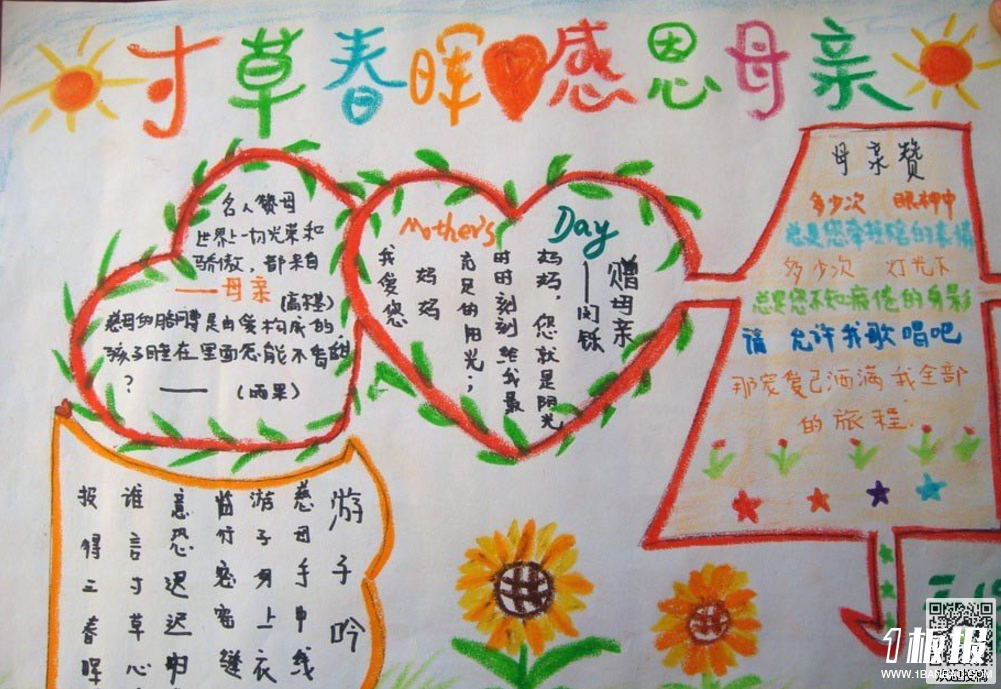 寸草春晖感恩母亲
名人赞母
世界上一切光荣和
骄傲，都来自
——母亲
慈母的胳膊是由爱构成的
孩子睡在里面怎能不香甜
？——（雨果）
Mother's Day
——赠母亲
妈妈，您就是阳光
时时刻刻给我最
充足的阳光；
妈妈
我爱您
母亲赞
多少次 眼神中
总是您牵挂的表情
多少次 灯光下
总是您不知疲倦的身影
请 允许我歌唱吧
那宠爱已洒满我全部
的旅程.
游子吟
慈母手中线
游子身上衣
临行密密缝
意恐迟迟归
谁言寸草心
报得三春晖
1板报
WWW.1BANBAO.COM
欢迎投稿